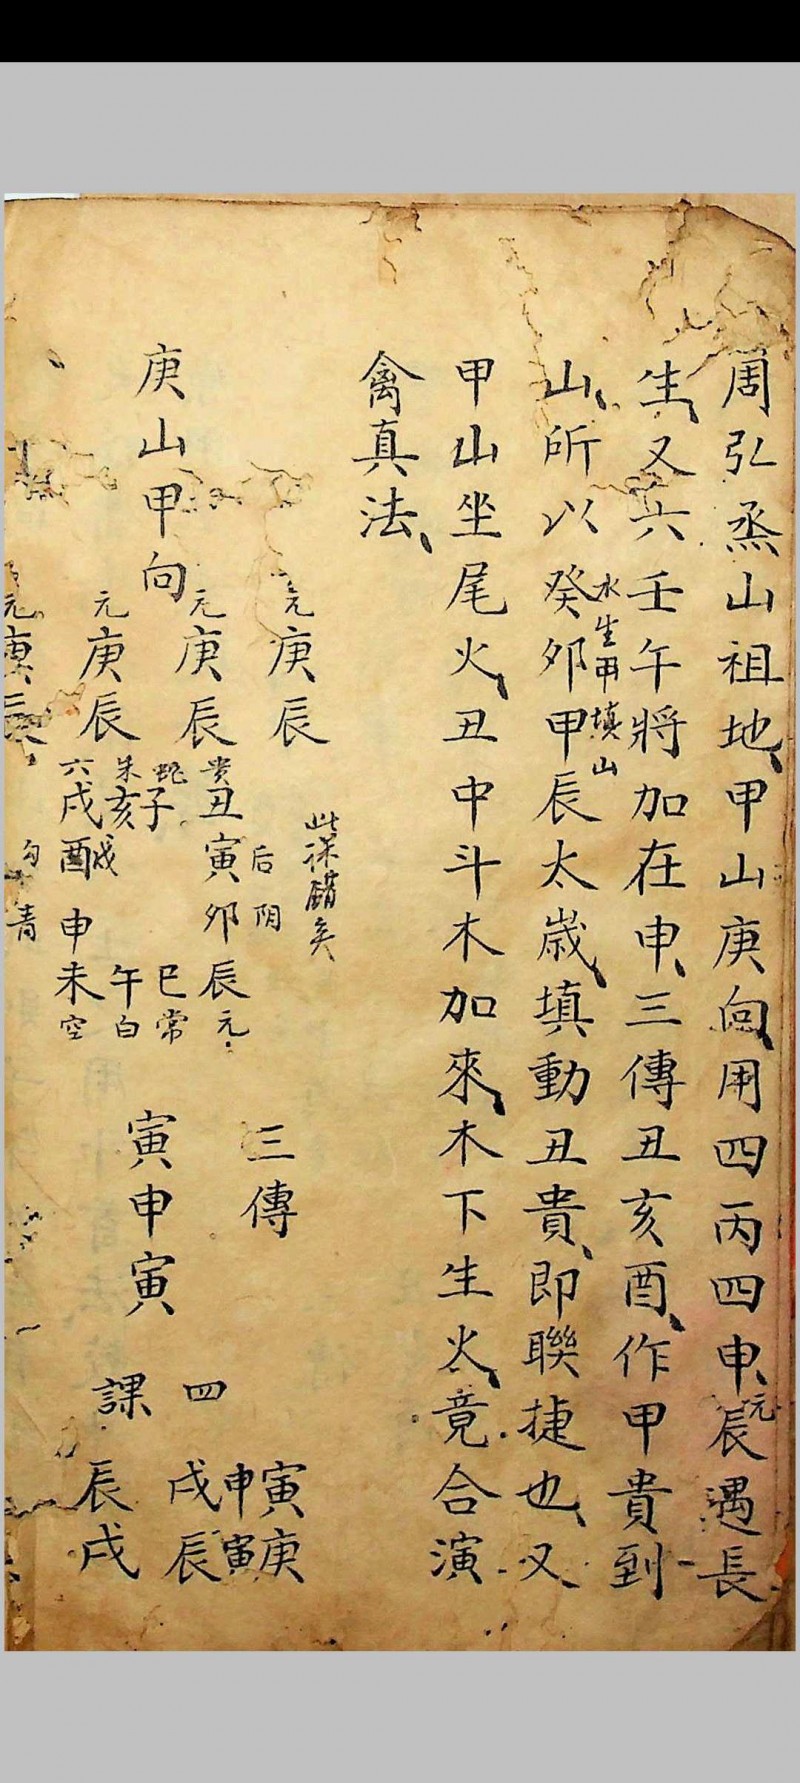 周弘烝山祖地、甲山庚向、用四丙四申、元辰遇長
生、又六壬午將加在申、三傳丑亥酉、作甲貴到
山、所以癸卯甲辰太歲、填動丑貴、即聯捷也、又
水生甲填山
甲山坐尾火、丑中斗木加來、木下生火、竟合演
禽真法、
此課錯矣
庚山甲向
元庚辰
元庚辰
元庚辰
元庚辰
貴丑寅卯辰元
后陰
蛇子
巳常
朱亥
午白
六戌酉申未空
勾青
三傳
寅申寅
四課
寅庚
申寅
戌辰
辰戌